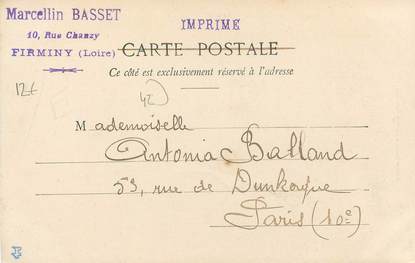 Marcellin BASSET
10, Rue Chanzy
FIRMINY (Loire)
IMPRIMÉ
CARTE POSTALE
Ce côté est exclusivement réservé à l'adresse
12€
42
Mademoiselle
Antonia Balland
53, rue de Dunkerque
Paris (10e)